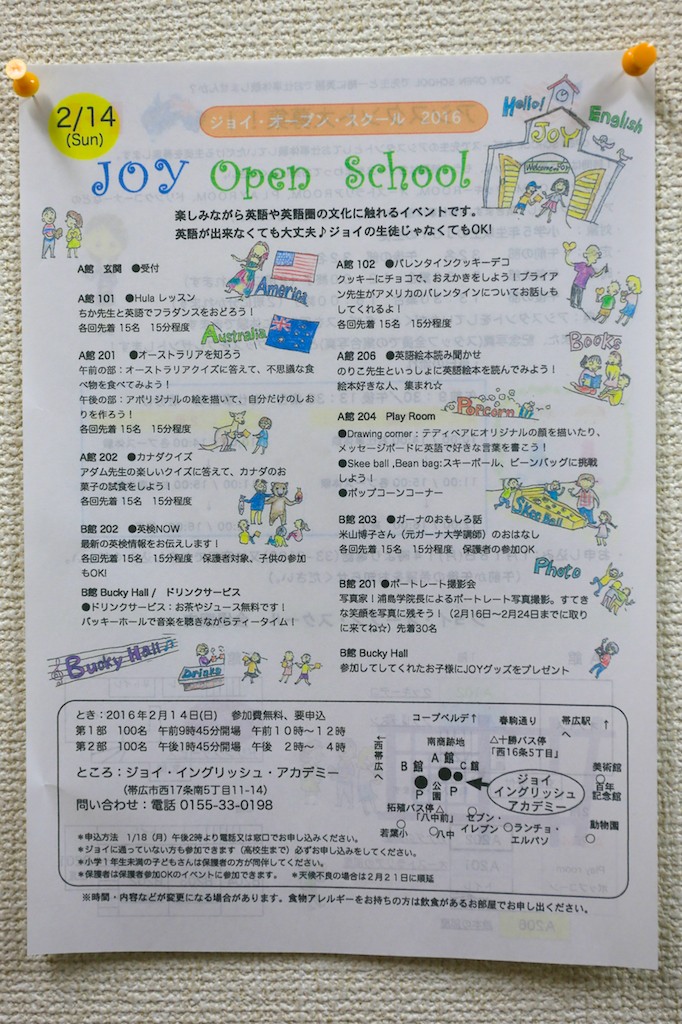 2/14
(Sun)
ジョイ・オープン・スクール 2016
JOY Open School
Hello!
English
JOY
Welcome to JOY
楽しみながら英語や英語圏の文化に触れるイベントです。
英語が出来なくても大丈夫♪ジョイの生徒じゃなくてもOK!
A館 玄関 ●受付
America
A館 101 ●Hula レッスン
ちか先生と英語でフラダンスをおどろう!
各回先着 15名 15分程度
Australia
A館 201 ●オーストラリアを知ろう
午前の部:オーストラリアクイズに答えて、不思議な食
べ物を食べてみよう!
午後の部:アボリジナルの絵を描いて、自分だけのしお
りを作ろう!
各回先着 15名 15分程度
A館 202 ●カナダクイズ
アダム先生の楽しいクイズに答えて、カナダのお
菓子の試食をしよう!
各回先着 15名 15分程度
B館 202 ●英検NOW
最新の英検情報をお伝えします!
各回先着 15名 15分程度 保護者対象、子供の参加
もOK!
B館 Bucky Hall / ドリンクサービス
●ドリンクサービス:お茶やジュース無料です!
バッキーホールで音楽を聴きながらティータイム!
Bucky Hall
Drinks
A館 102 ●バレンタインクッキーデコ
クッキーにチョコで、おえかきをしよう!ブライア
ン先生がアメリカのバレンタインについてお話しも
してくれるよ!
各回先着 15名 15分程度
Books
A館 206 ●英語絵本読み聞かせ
のりこ先生といっしょに英語絵本を読んでみよう!
絵本好きな人、集まれ☆
Popcorn
A館 204 Play Room
●Drawing corner:テディベアにオリジナルの顔を描いたり、
メッセージボードに英語で好きな言葉を書こう!
●Skee ball ,Bean bag:スキーボール、ビーンバッグに挑戦
しよう!
●ポップコーンコーナー
Skee Ball
B館 203 ●ガーナのおもしろ話
米山博子さん(元ガーナ大学講師)のおはなし
各回先着 15名 15分程度 保護者の参加OK
Photo
B館 201 ●ポートレート撮影会
写真家!浦島学院長によるポートレート写真撮影。すてき
な笑顔を写真に残そう!(2月16日〜2月24日までに取り
に来てね☆)先着30名
B館 Bucky Hall
参加してしてくれたお子様にJOYグッズをプレゼント
とき:2016年2月14日(日) 参加費無料、要申込
第1部 100名 午前9時45分開場 午前10時〜12時
第2部 100名 午後1時45分開場 午後 2時〜 4時
ところ:ジョイ・イングリッシュ・アカデミー
(帯広市西17条南5丁目11-14)
問い合わせ:電話 0155-33-0198
*申込方法 1/18(月)午後2時より電話又は窓口でお申し込みください。
*ジョイに通っていない方も参加できます(高校生まで)必ずお申し込みをしてください。
*小学1年生未満の子どもさんは保護者の方が同伴してください。
*保護者は保護者参加OKのイベントに参加できます。 *天候不良の場合は2月21日に順延
コープベルデ↑
春駒通り
帯広駅→
↑西帯広へ
南商跡地
△十勝バス停
「西16条5丁目」
A館
B館
C館
公園
P
P
ジョイ
イングリッシュ
アカデミー
美術館
百年
記念館
拓殖バス停△
「八中前」
セブン・
イレブン
ランチョ・
エルパソ
動物園
若葉小
八中
※時間・内容などが変更になる場合があります。食物アレルギーをお持ちの方は飲食があるお部屋でお申し出ください。